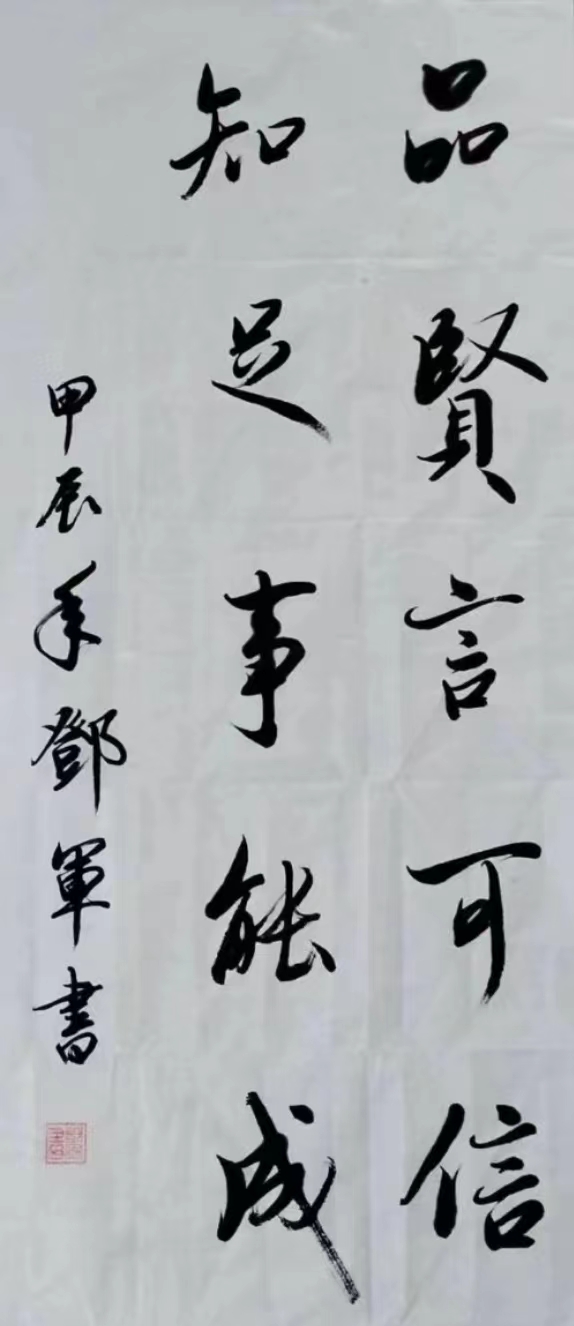 品賢言可信
知足事能成
甲辰年鄧軍書